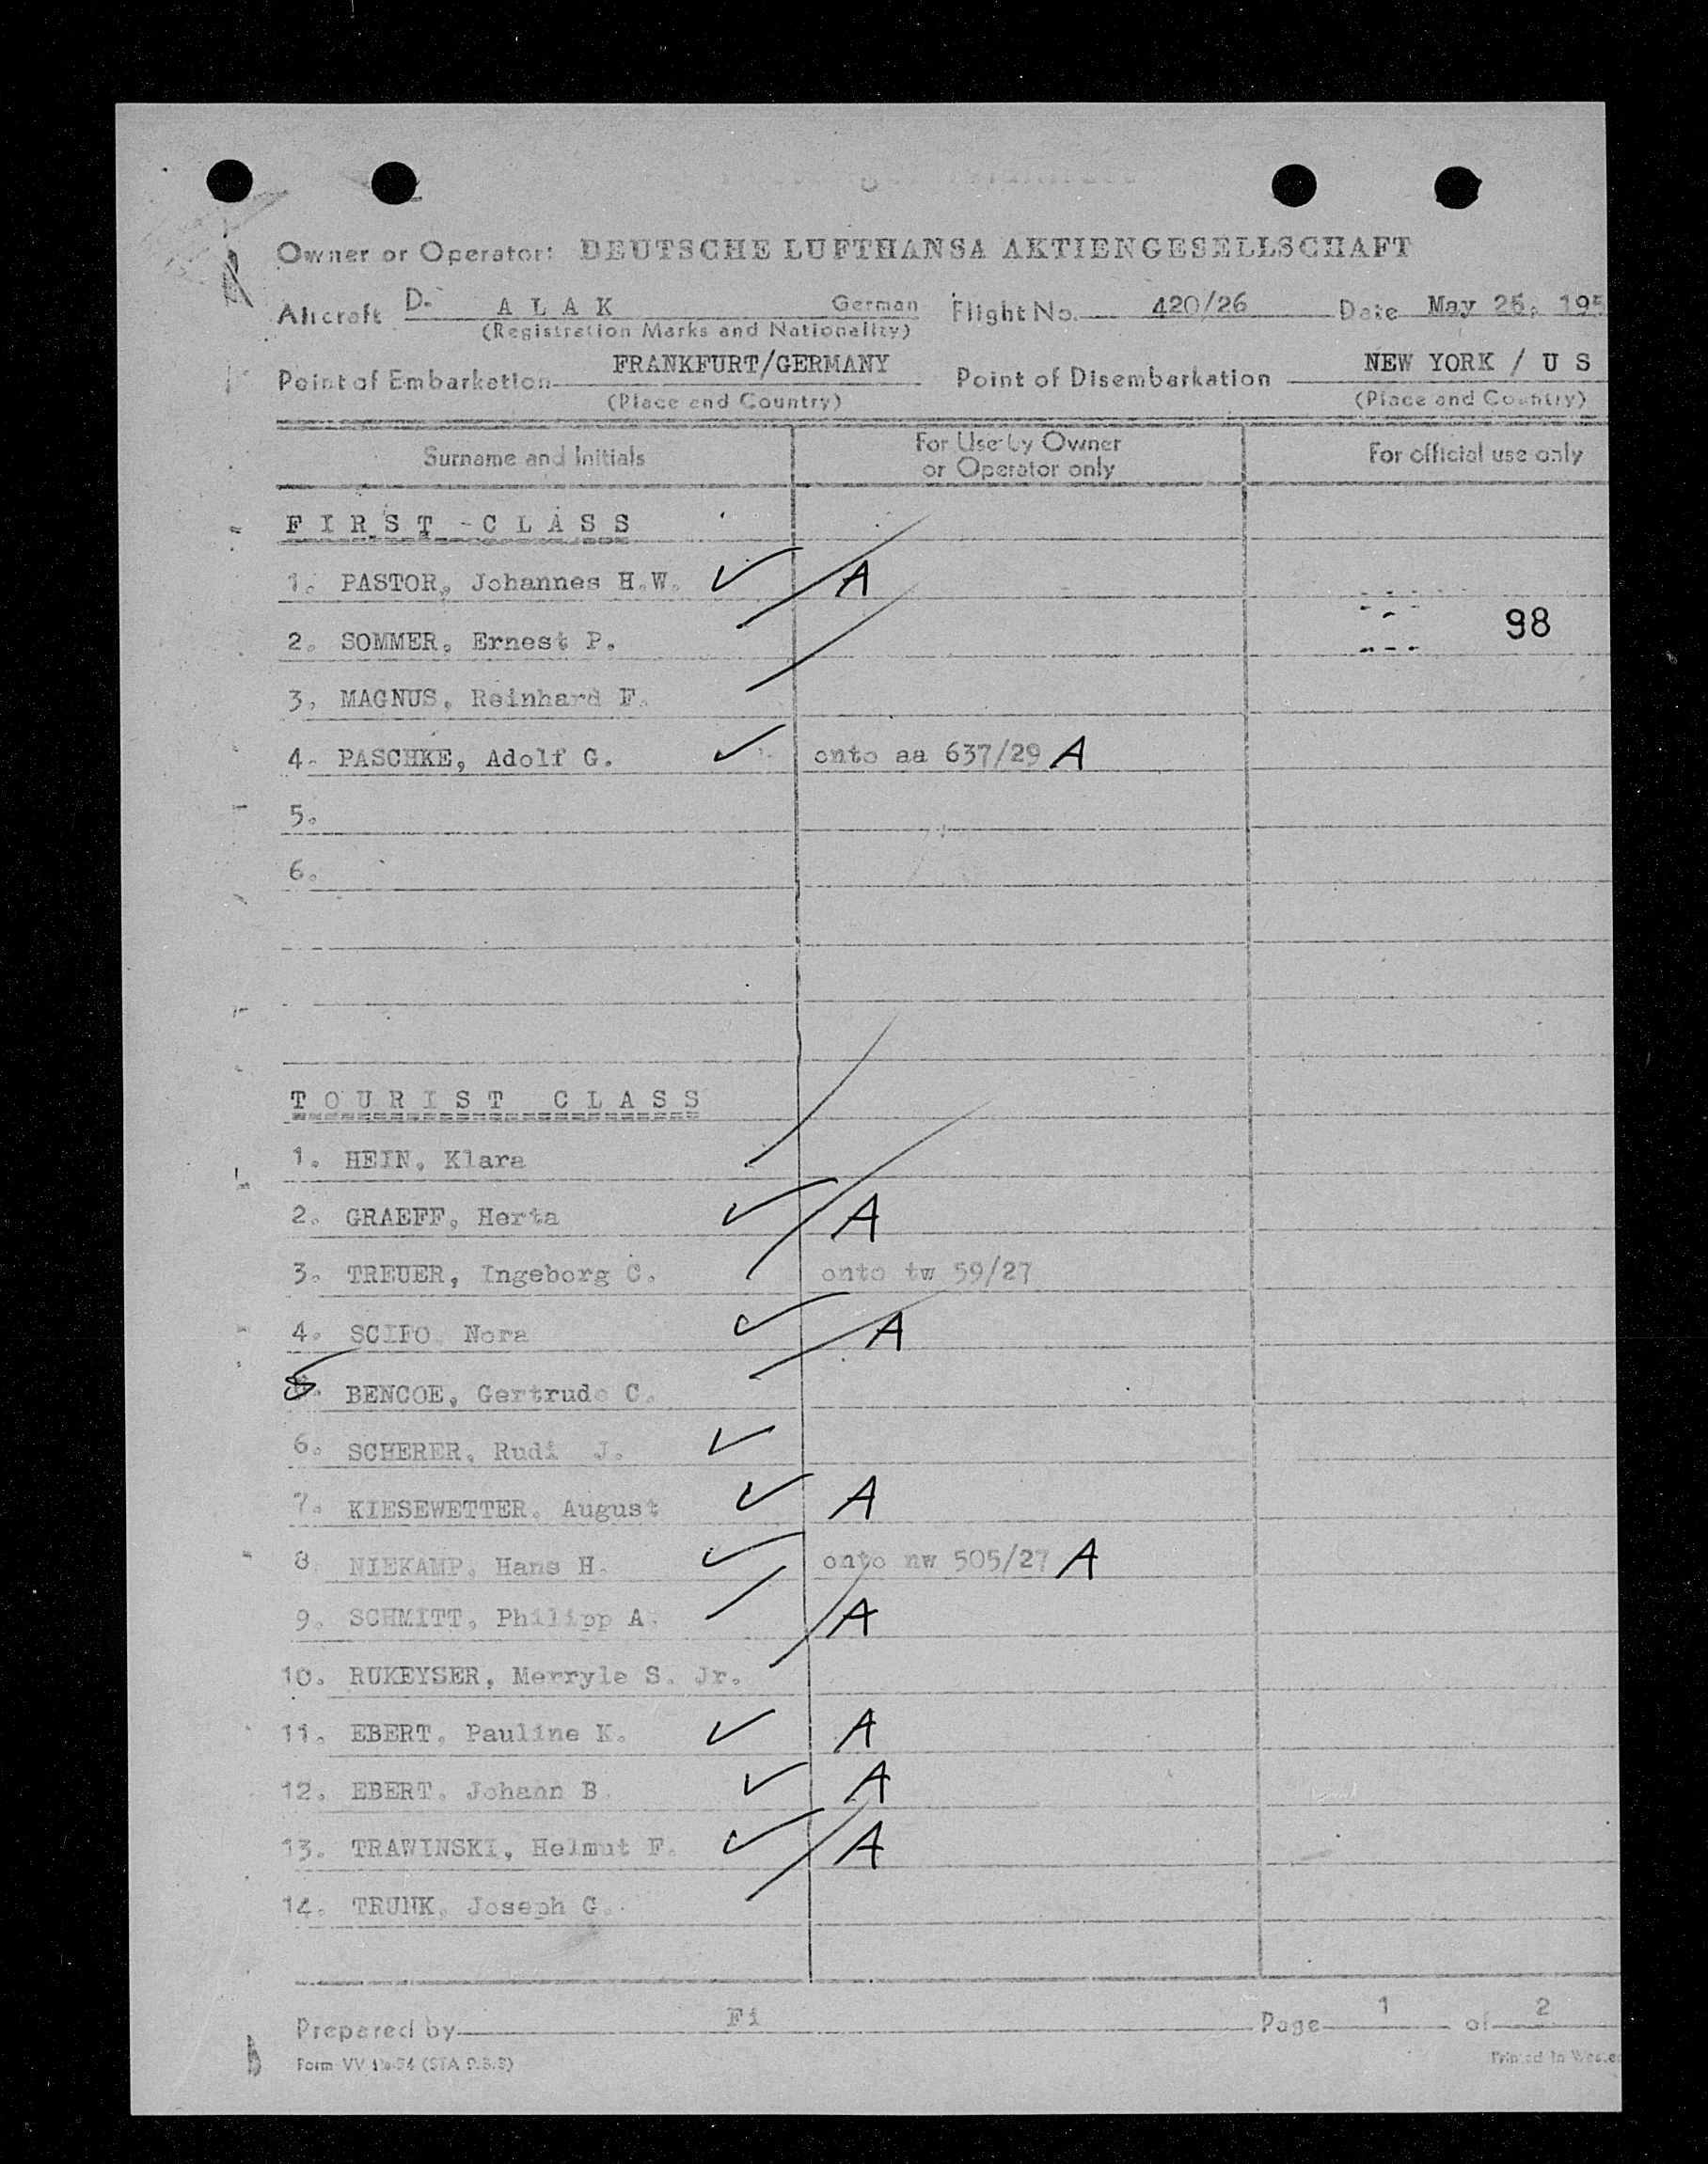 Owner or Operator: DEUTSCHE LUFTHANSA AKTIENGESELLSCHAFT
Aircraft D- A L A K German Flight No. 420/26 Date May 26, 195
(Registration Marks and Nationality)
Point of Embarkation FRANKFURT/GERMANY Point of Disembarkation NEW YORK / U S
(Place and Country) (Place and Country)
Surname and Initials For Use by Owner or Operator only For official use only
F I R S T - C L A S S
1. PASTOR, Johannes H.W. ✓ A
98
2. SOMMER, Ernest P.
3. MAGNUS, Reinhard F.
4. PASCHKE, Adolf G. ✓ onto aa 637/29 A
5.
6.
T O U R I S T C L A S S
1. HEIN, Klara
2. GRAEFF, Herta ✓ A
3. TREUER, Ingeborg C. onto tw 59/27
4. SCIPO Nora ✓ A
5. BENCOE, Gertrude C.
6. SCHERER, Rudi J. ✓
7. KIESEWETTER, August ✓ A
8. NIEKAMP, Hans H. ✓ onto nw 505/27 A
9. SCHMITT, Philipp A. A
10. RUKEYSER, Merryle S. Jr.
11. EBERT, Pauline K. ✓ A
12. EBERT, Johann B. ✓ A
13. TRAWINSKI, Helmut F. ✓ A
14. TRUNK, Joseph G.
Prepared by Fi Page 1 of 2
Form VV
Printed in